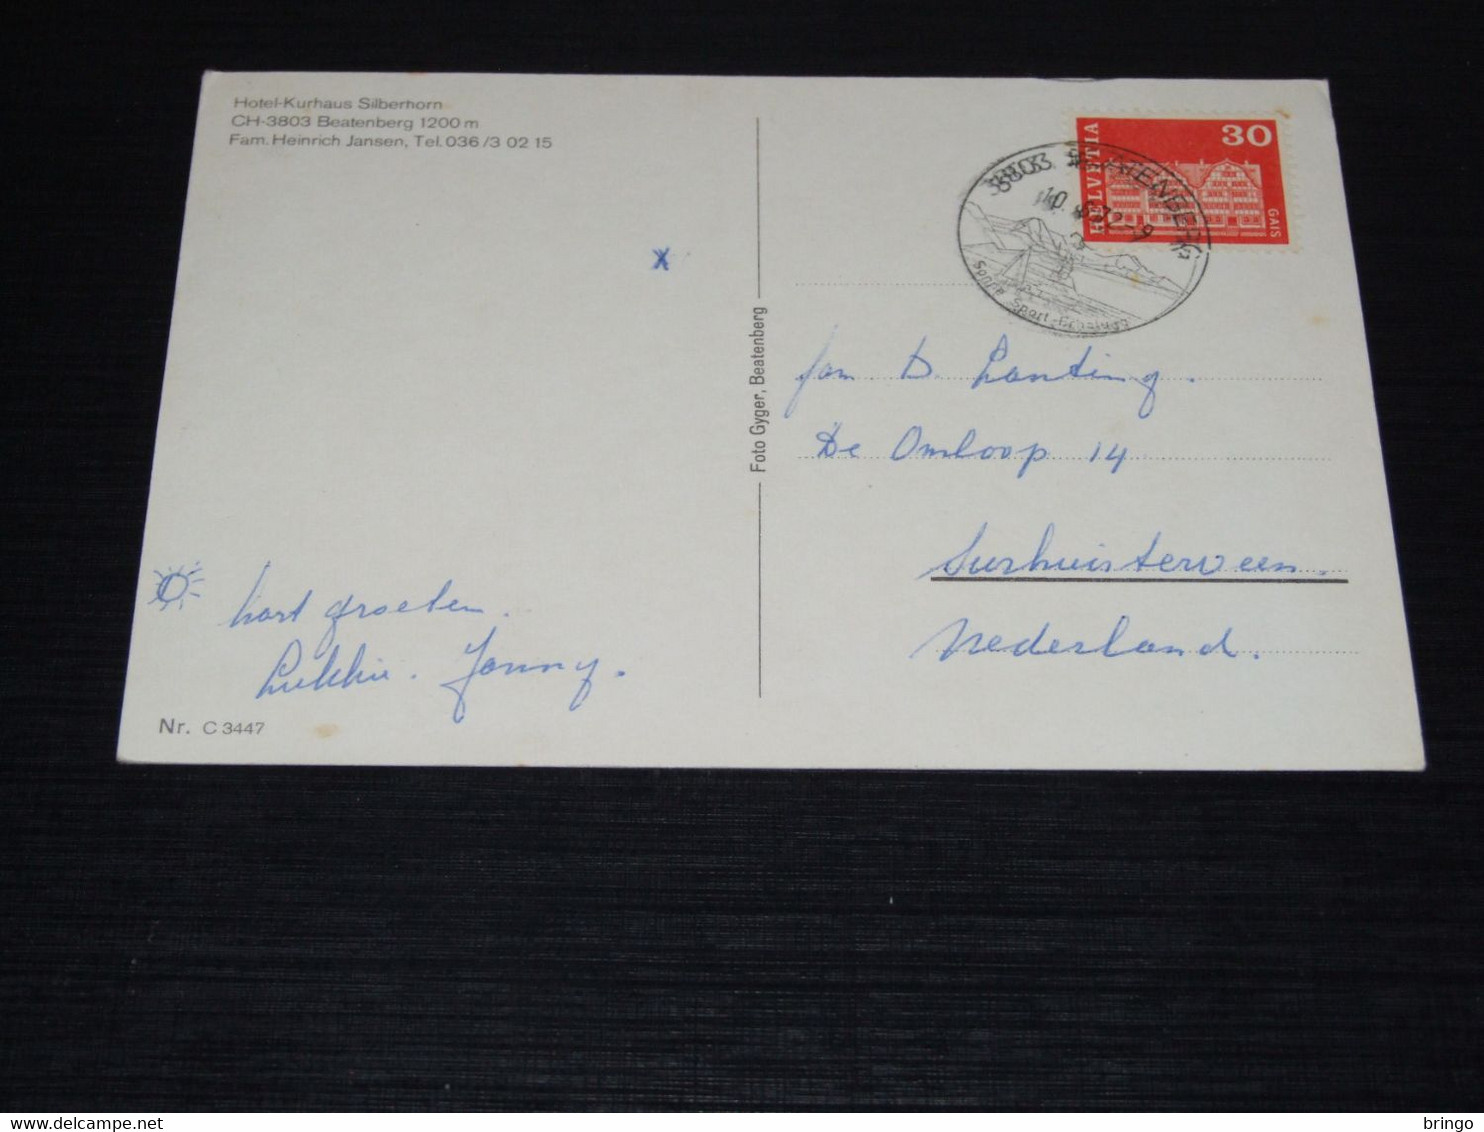 Hotel-Kurhaus Silberhorn
CH-3803 Beatenberg 1200 m
Fam. Heinrich Jansen, Tel. 036 / 3 02 15
X
hart groeten.
Lukkie. Janny.
Nr. C 3447
Foto Gyger, Beatenberg
HELVETIA
30
GAIS
3803 BEATENBERG
Sonne Sport-Erholung
fam. D. Lanting.
De Omloop 14
Surhuisterveen.
Nederland.
delcampe.net
bringo